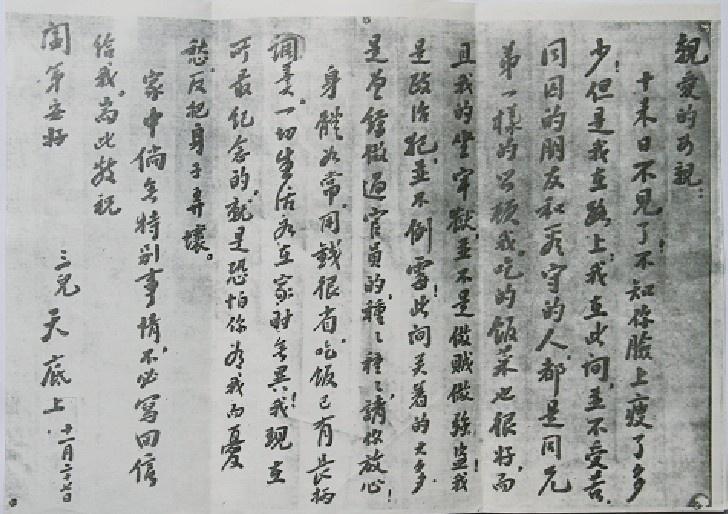 親愛的母親：
十来日不見了！不知你臉上瘦了多
少！但是我在路上，我在此间，並不受苦。
同囚的朋友和看守的人，都是同兄
弟一樣的照顧我。吃的飯菜也很好，而
且我的坐牢獄，並不是做賊做強盗！我
是政治犯，並不倒霉！此间关着的大多
是曾經做過官員的，種々種々，請你放心！
身體如常，用錢很省，吃飯已有
調羹。一切生活如在家时無異！我現在
可最紀念的，就是恐怕你為我而憂
愁，反把身子弄壞。
家中倘無特别事情，不必寫回信
给我。耑此敬祝
閤第安好
三兒 天底上 十一月二十七日